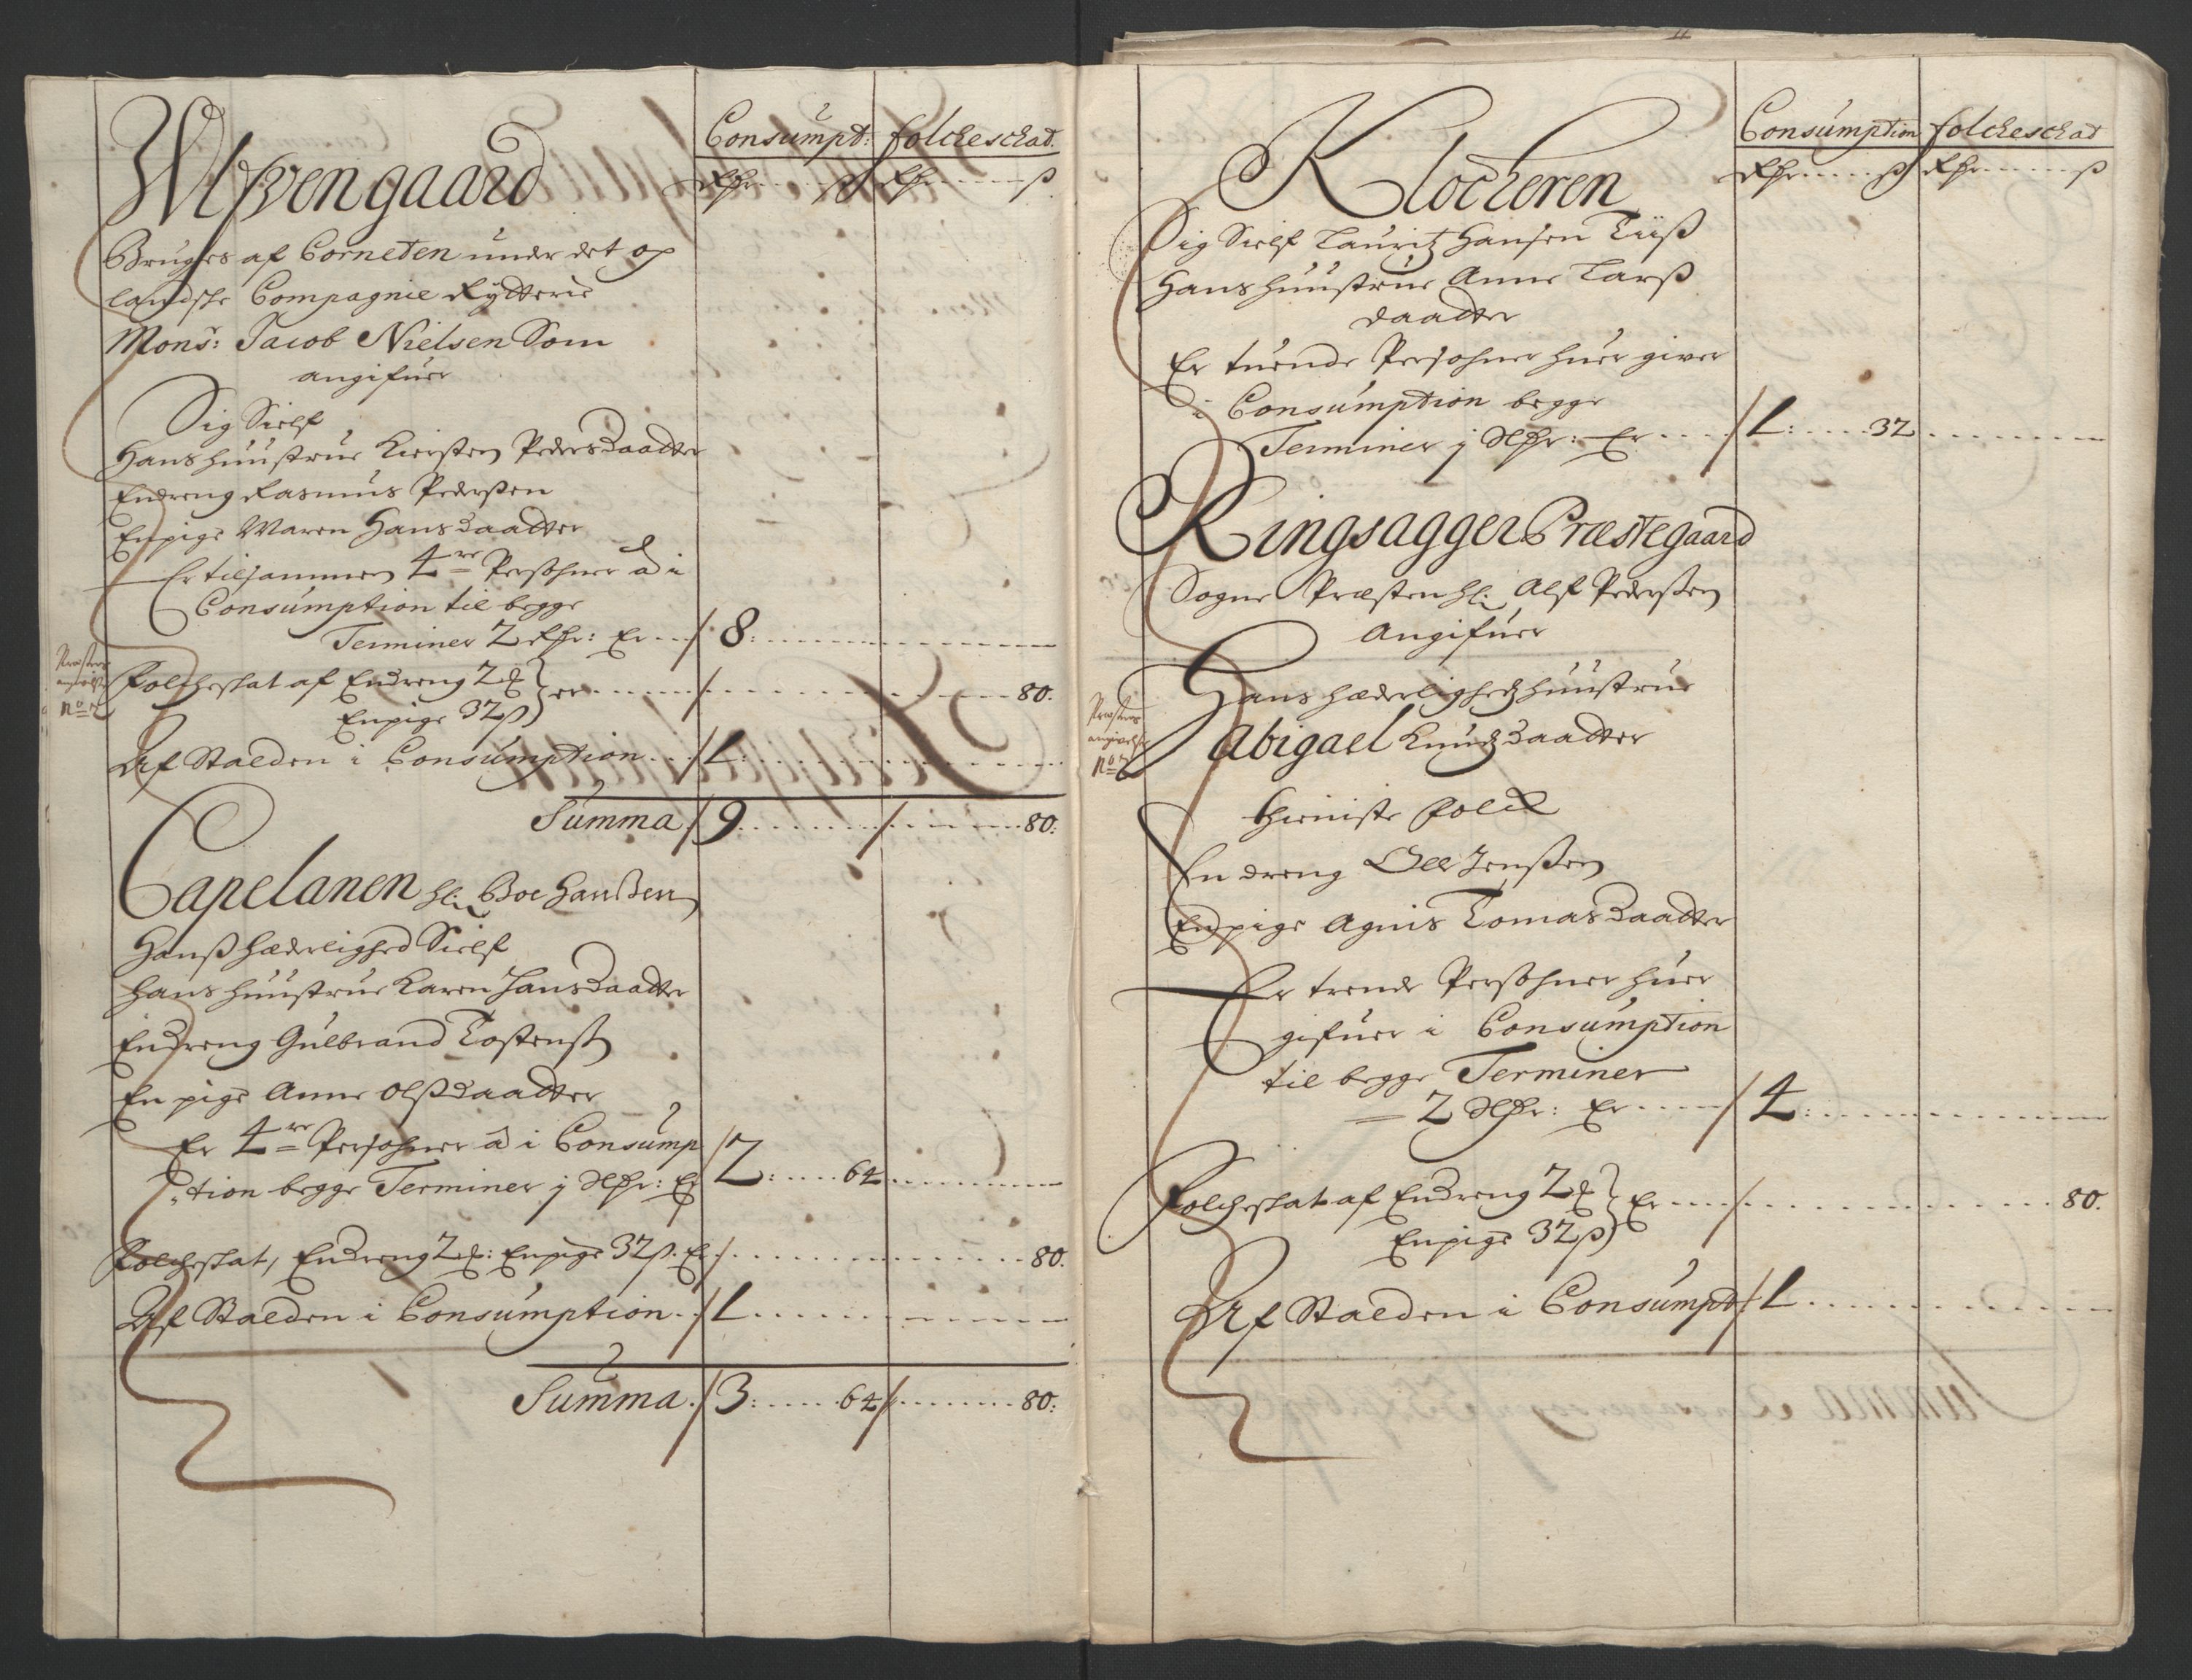 Consumpt: folckeschat.
Rdr ß Rdr ß
Wlfven gaard
Bruges af Corneten under det op
landske Compagnie Rytterie
Monsr: Jacob Nielsen Som
angifuer
Sig Sielf
Hans huustrue Kiersten Pedersdaatter
En dreng Rasmus Pederßen
En pige Maren Hansdaatter
Er tilsammen 4re Persohner a i
Consumption til begge
Terminer 2 Rdr: Er 8:
Præstens
No
Folcheskat af En dreng ZE
En pige 32 ß er 80.
Af Stalden i Consumption 1:
Summa 9 80:
Capelanen Hr: Boe Hanßen
Hanß hæderlighed Sielf
Hans huustrue Karen Hansdaatter
En dreng Gulbrand Tostenß
En pige Anne Olßdaatter
Er 4re Persohner a i Consump
tion begge Terminer j Rdr: Er 2: 64
Folcheskat, En dreng : En pige 32 ß. Er 80.
Af Stalden i Consumption 1
Summa 3: 64 80:
Consumption folckeschat
Rdr ß Rdr ß
Klockeren
Sig Sielf Lauritz Hansen Tiiß
Hans huustrue Anne Larß
daatter
Er tuende Persohner huer giver
i Consumption begge
Terminer j Rdr: Er 1: 32
Ringsagger Præstegaard
Sogne Præsten Hr: Alf Pederßen
Angifuer
Hans hæderligheds huustrue
Præstens
No
Abigael Knudsdaatter
Thieniste Folck
En dreng Olle Jenßen
En pige Agnis Tomasdaatter
Er trende Persohner huer
gifuer i Consumption
til begge Terminer
2 Rdr: Er 4:
Folcheskat af En dreng
En pige 32 ß Er 80.
Af Stalden i Consumpt 1